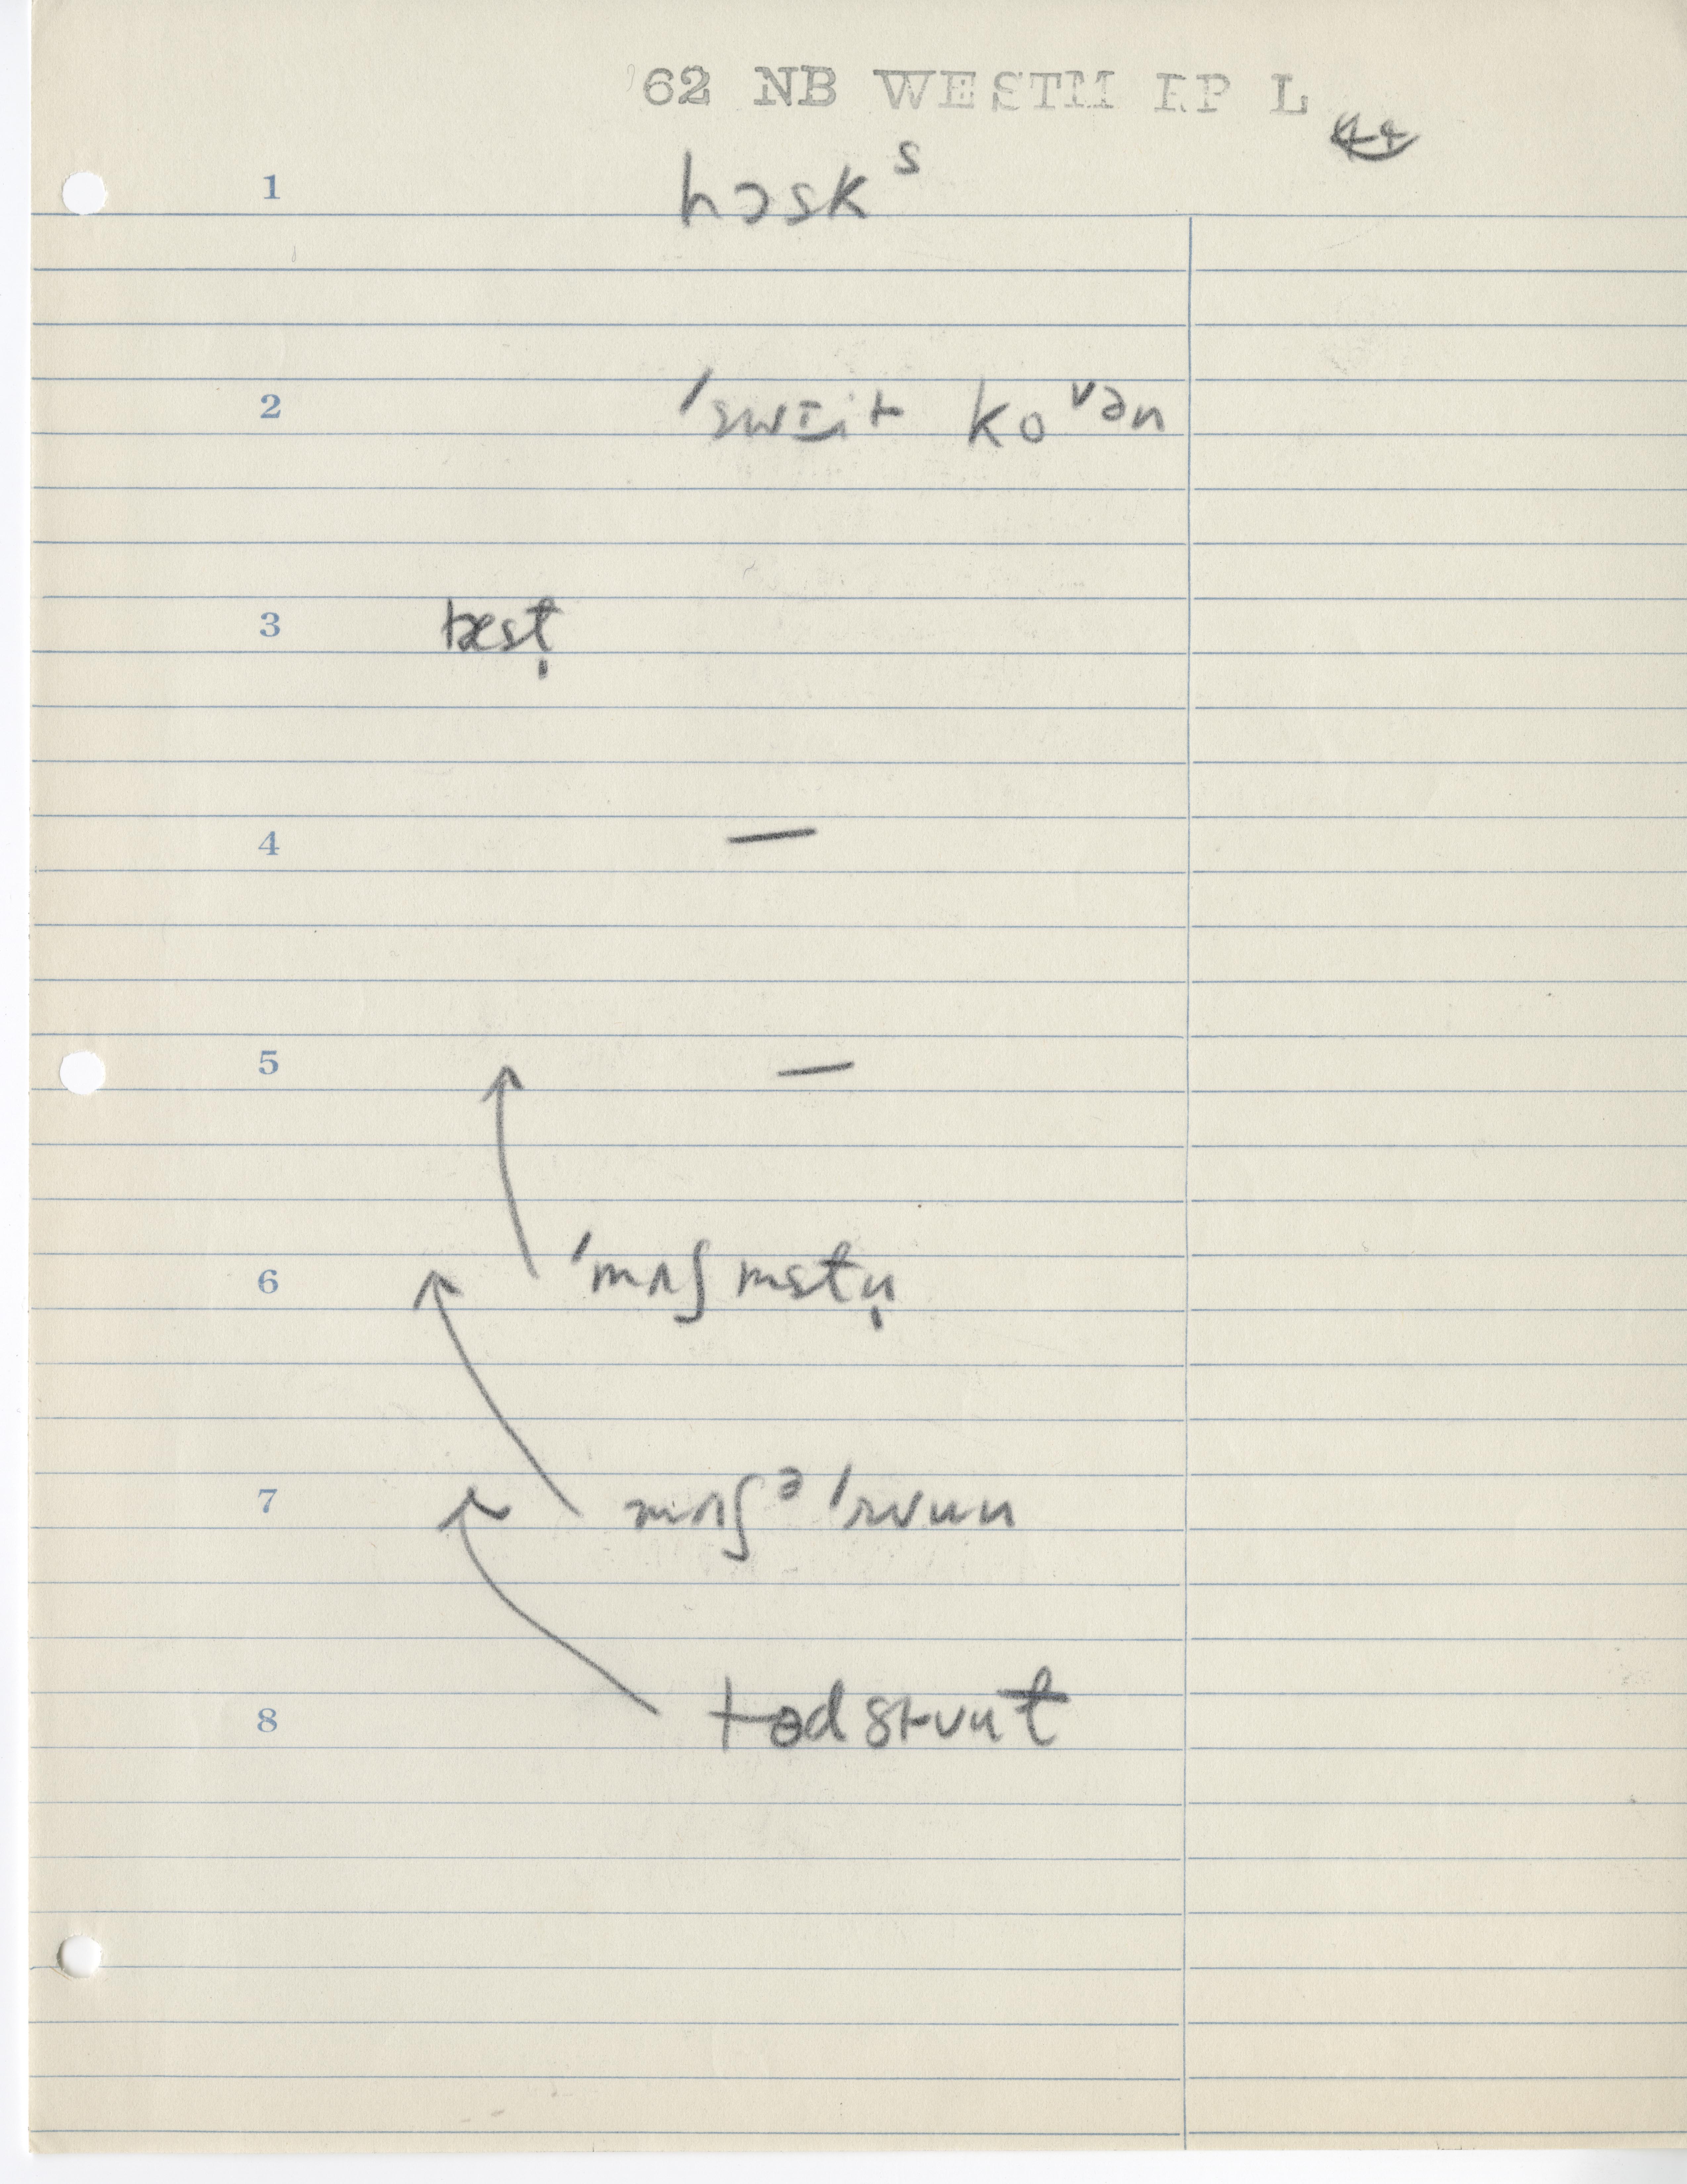 '62 NB WESTM RP L
44
1 hɔsk s
2 'swɪit koᵛən
3 best̬
4 —
5 —
6 'mʌʃ mstṇ
7 mʌʃ ə 'rʊun
8 tɵdstʊut̬